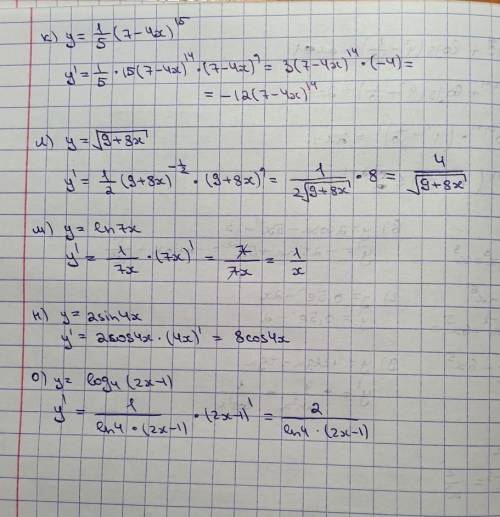 к) y = 1/5 (7-4x)^15
y' = 1/5 · 15(7-4x)^14 · (7-4x)' = 3(7-4x)^14 · (-4) =
= -12(7-4x)^14
л) y = √(9+8x)
y' = 1/2 (9+8x)^(-1/2) · (9+8x)' = 1/(2√(9+8x)) · 8 = 4/√(9+8x)
м) y = ln7x
y' = 1/7x · (7x)' = 7/7x = 1/x
н) y = 2sin4x
y' = 2cos4x · (4x)' = 8cos4x
о) y = log₄(2x-1)
y' = 1/(ln4 · (2x-1)) · (2x-1)' = 2/(ln4 · (2x-1))